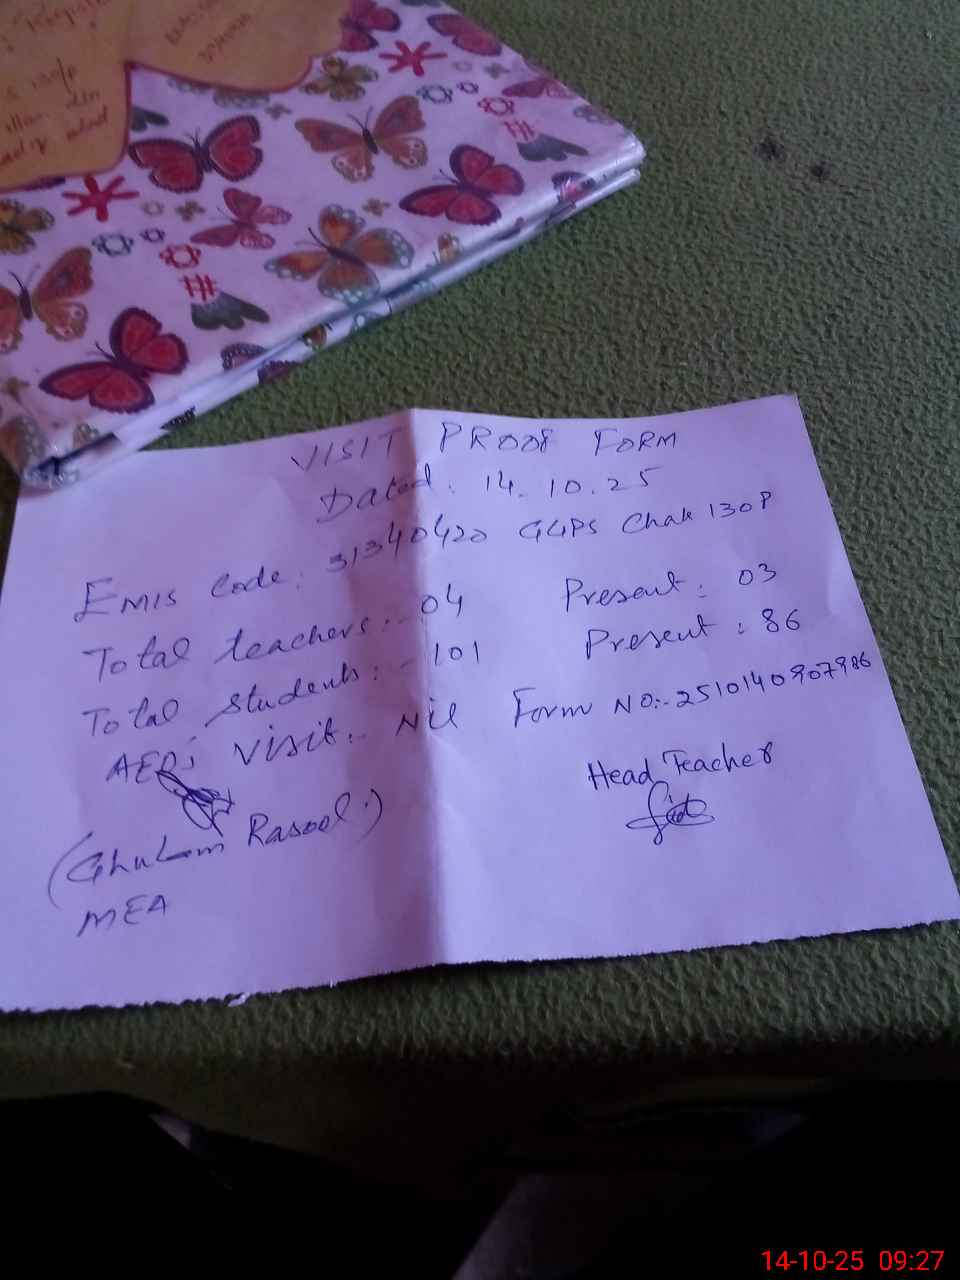 VISIT PROOF FORM
Dated: 14.10.25
EMIS Code: 31340420 GGPS Chak 130P
Total teachers:- 04 Present: 03
Total Students:- 101 Present: 86
AEO's Visit:- Nil Form NO:- 2510140907986
Head Teacher
(Ghulam Rasool)
MEA
14-10-25 09:27